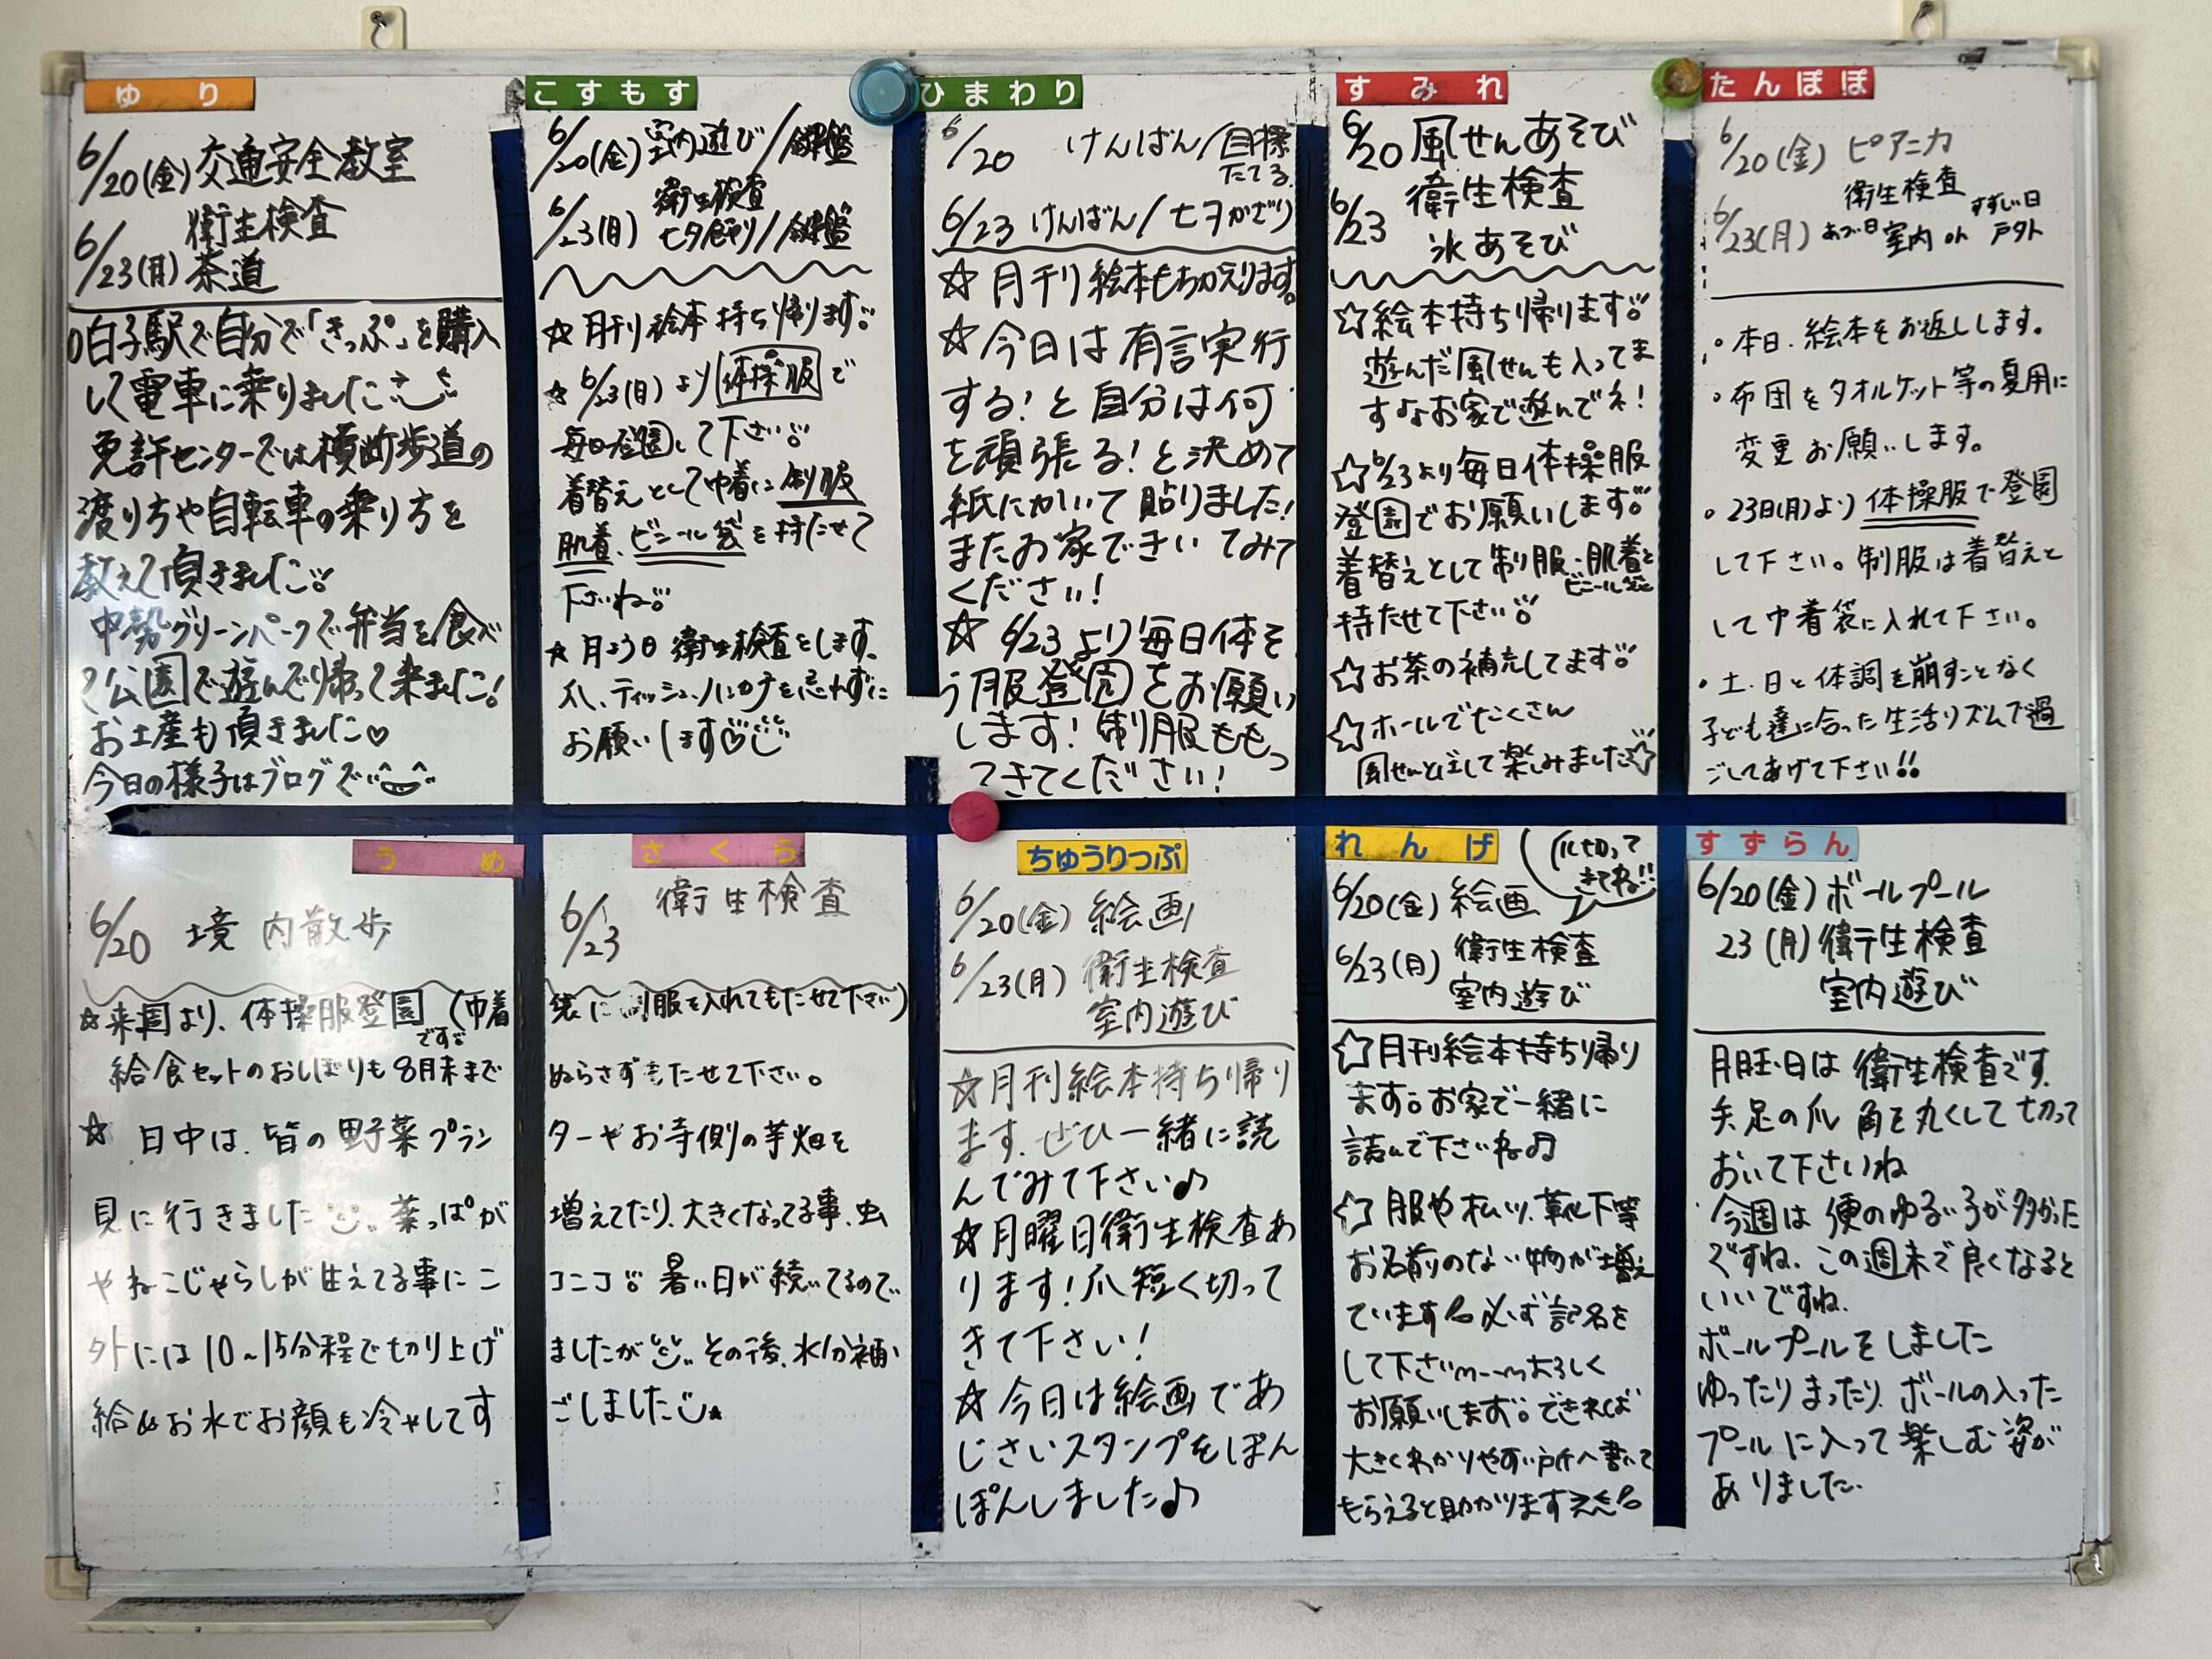 ゆり
6/20(金) 交通安全教室
衛生検査
6/23(月) 茶道
白子駅で自分で「きっぷ」を購入
して電車に乗りました
免許センターでは横断歩道の
渡り方や自転車の乗り方を
教えて頂きました
中勢グリーンパークで弁当を食べ
て公園で遊んで帰って来ました!
お土産も頂きました♡
今日の様子はブログで
こすもす
6/20(金) 室内遊び/鍵盤
衛生検査
6/23(月) 七夕飾り/鍵盤
☆月刊絵本持ち帰ります。
☆6/23(月)より体操服で
毎日登園して下さい。
着替えとして巾着に制服
肌着、ビニール袋を持たせて
下さいね。
☆月23日 衛生検査をします。
爪、ティッシュ、ハンカチを忘れずに
お願いします♡
ひまわり
6/20 けんばん/目標
たてる
6/23 けんばん/七夕かざり
☆月刊絵本もちかえります。
☆今日は有言実行
する!と自分は何
を頑張る!と決めて
紙にかいて貼りました!
またお家できいてみて
ください!
☆6/23より毎日体そ
う服登園をお願い
します!制服ももっ
てきてください!
すみれ
6/20 風せんあそび
衛生検査
6/23 氷あそび
☆絵本持ち帰ります。
遊んだ風せんも入ってま
すよお家で遊んでネ!
☆6/23より毎日体操服
登園でお願いします。
着替えとして制服・肌着と
ビニール袋を
持たせて下さい。
☆お茶の補充してます。
☆ホールでたくさん
風せんとばして楽しみました☆
たんぽぽ
6/20(金) ピアニカ
衛生検査
6/23(月) あつい日 室内 or すずしい日 戸外
・本日、絵本をお返しします。
・布団をタオルケット等の夏用に
変更お願いします。
・23日(月)より体操服で登園
して下さい。制服は着替えと
して巾着袋に入れて下さい。
・土、日と体調を崩すことなく
子ども達に合った生活リズムで過
ごしてあげて下さい!!
うめ
さくら
6/20 境内散歩
6/23 衛生検査
☆来園より、体操服登園です(巾着袋に制服を入れてもたせて下さい)
給食セットのおしぼりも8月末までぬらさずもたせて下さい。
☆日中は、皆の野菜プランターやお寺側の芋畑を
見に行きました 葉っぱが増えてたり、大きくなってる事、虫
やねこじゃらしが生えてる事にニコニコ。暑い日が続いてるので
外には10~15分程で切り上げましたが その後、水分補
給やお水でお顔も冷やしてすごしました
ちゅうりっぷ
6/20(金) 絵画
6/23(月) 衛生検査
室内遊び
☆月刊絵本持ち帰り
ます。ぜひ一緒に読
んでみて下さい♪
☆月曜日衛生検査あ
ります!爪短く切って
きて下さい!
☆今日は絵画であ
じさいスタンプをぽん
ぽんしました♪
れんげ
爪切って
きてね!!
6/20(金) 絵画
6/23(月) 衛生検査
室内遊び
☆月刊絵本持ち帰り
ます。お家で一緒に
読んで下さいね♫
☆服やパンツ、靴下等
お名前のない物が増え
ています 必ず記名を
して下さいm--mよろしく
お願いします。できれば
大きくわかりやすい所へ書いて
もらえると助かります
すずらん
6/20(金) ボールプール
23(月) 衛生検査
室内遊び
月曜日は衛生検査です。
手足の爪 角を丸くして切って
おいて下さいね
今週は便のゆるい子が多かった
ですね。この週末で良くなると
いいですね。
ボールプールをしました
ゆったりまったり、ボールの入った
プールに入って楽しむ姿が
ありました。